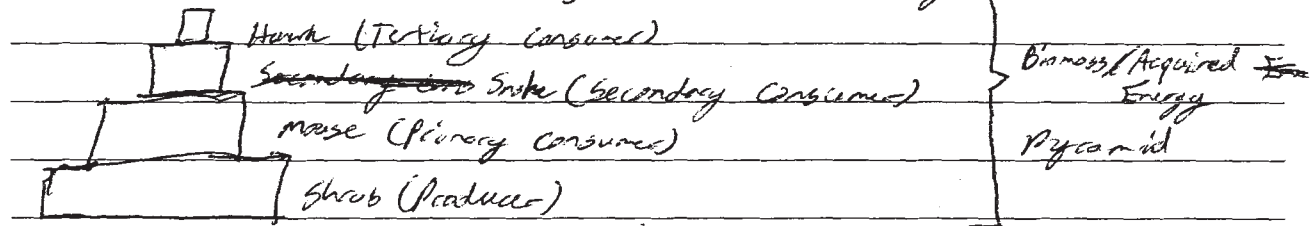 Hawk (Tertiary Consumer)
Snake (Secondary Consumer)
mouse (Primary Consumer)
Shrub (Producer)
Biomass/Acquired
Energy
Pyramid